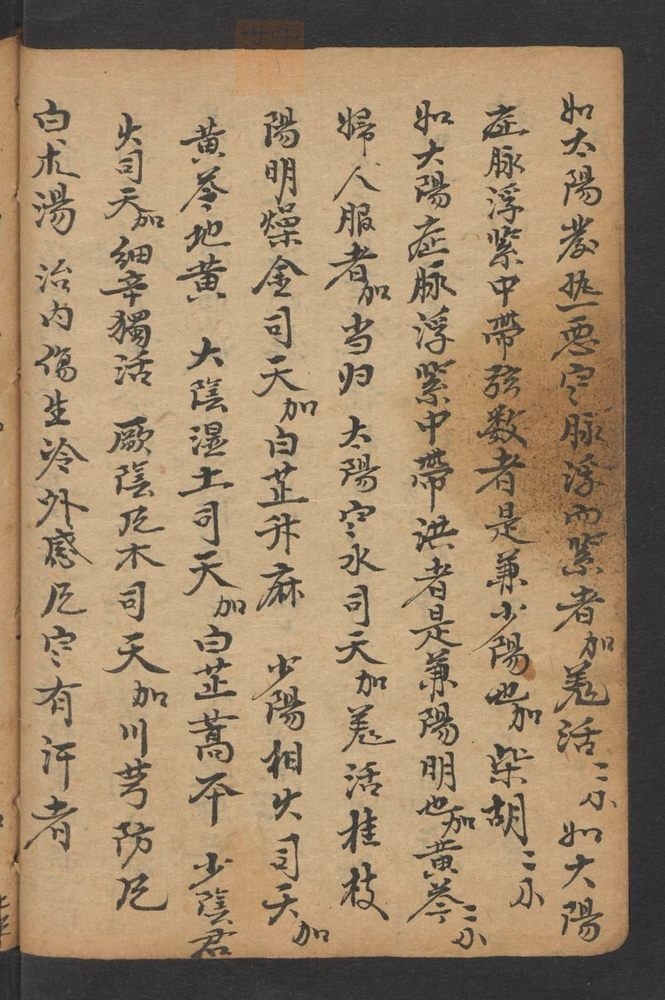 如太陽發热惡寒脉浮而緊者加羌活二分如大陽
症脉浮緊中帶弦数者是兼少陽也加柴胡二分
如大陽症脉浮緊中帶洪者是兼陽明也加黄芩二分
婦人服者加当归 太陽寒水司天加羗活桂枝
陽明燥金司天加白芷升麻 少陽相火司天加
黄芩地黄 大陰湿土司天加白芷蒿本 少陰君
火司天加細辛獨活 厥陰风木司天加川芎防风
白朮湯 治内傷生冷外感风寒有汗者